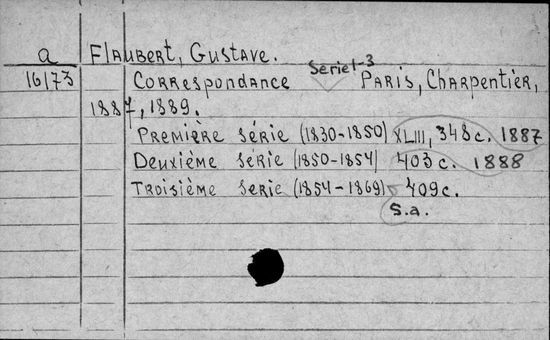 a Flaubert, Gustave.
16173 Correspondance Serie 1-3 Paris, Charpentier,
1887, 1889.
Première série (1830-1850) XLIII, 348 c. 1887
Deuxième série (1850-1854) 403 c. 1888
Troisième serie (1854-1869) 409 c.
S.a.